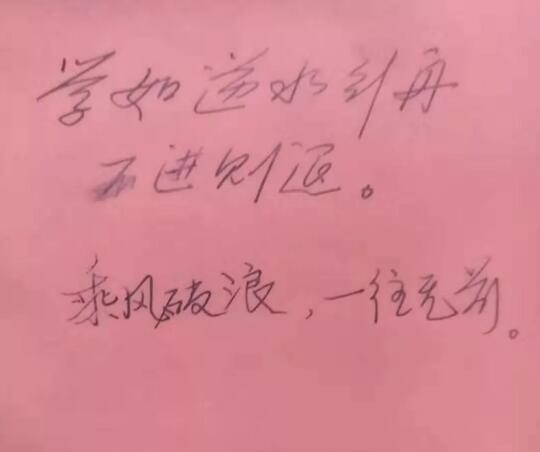 学如逆水行舟
不进则退。
乘风破浪,一往无前。